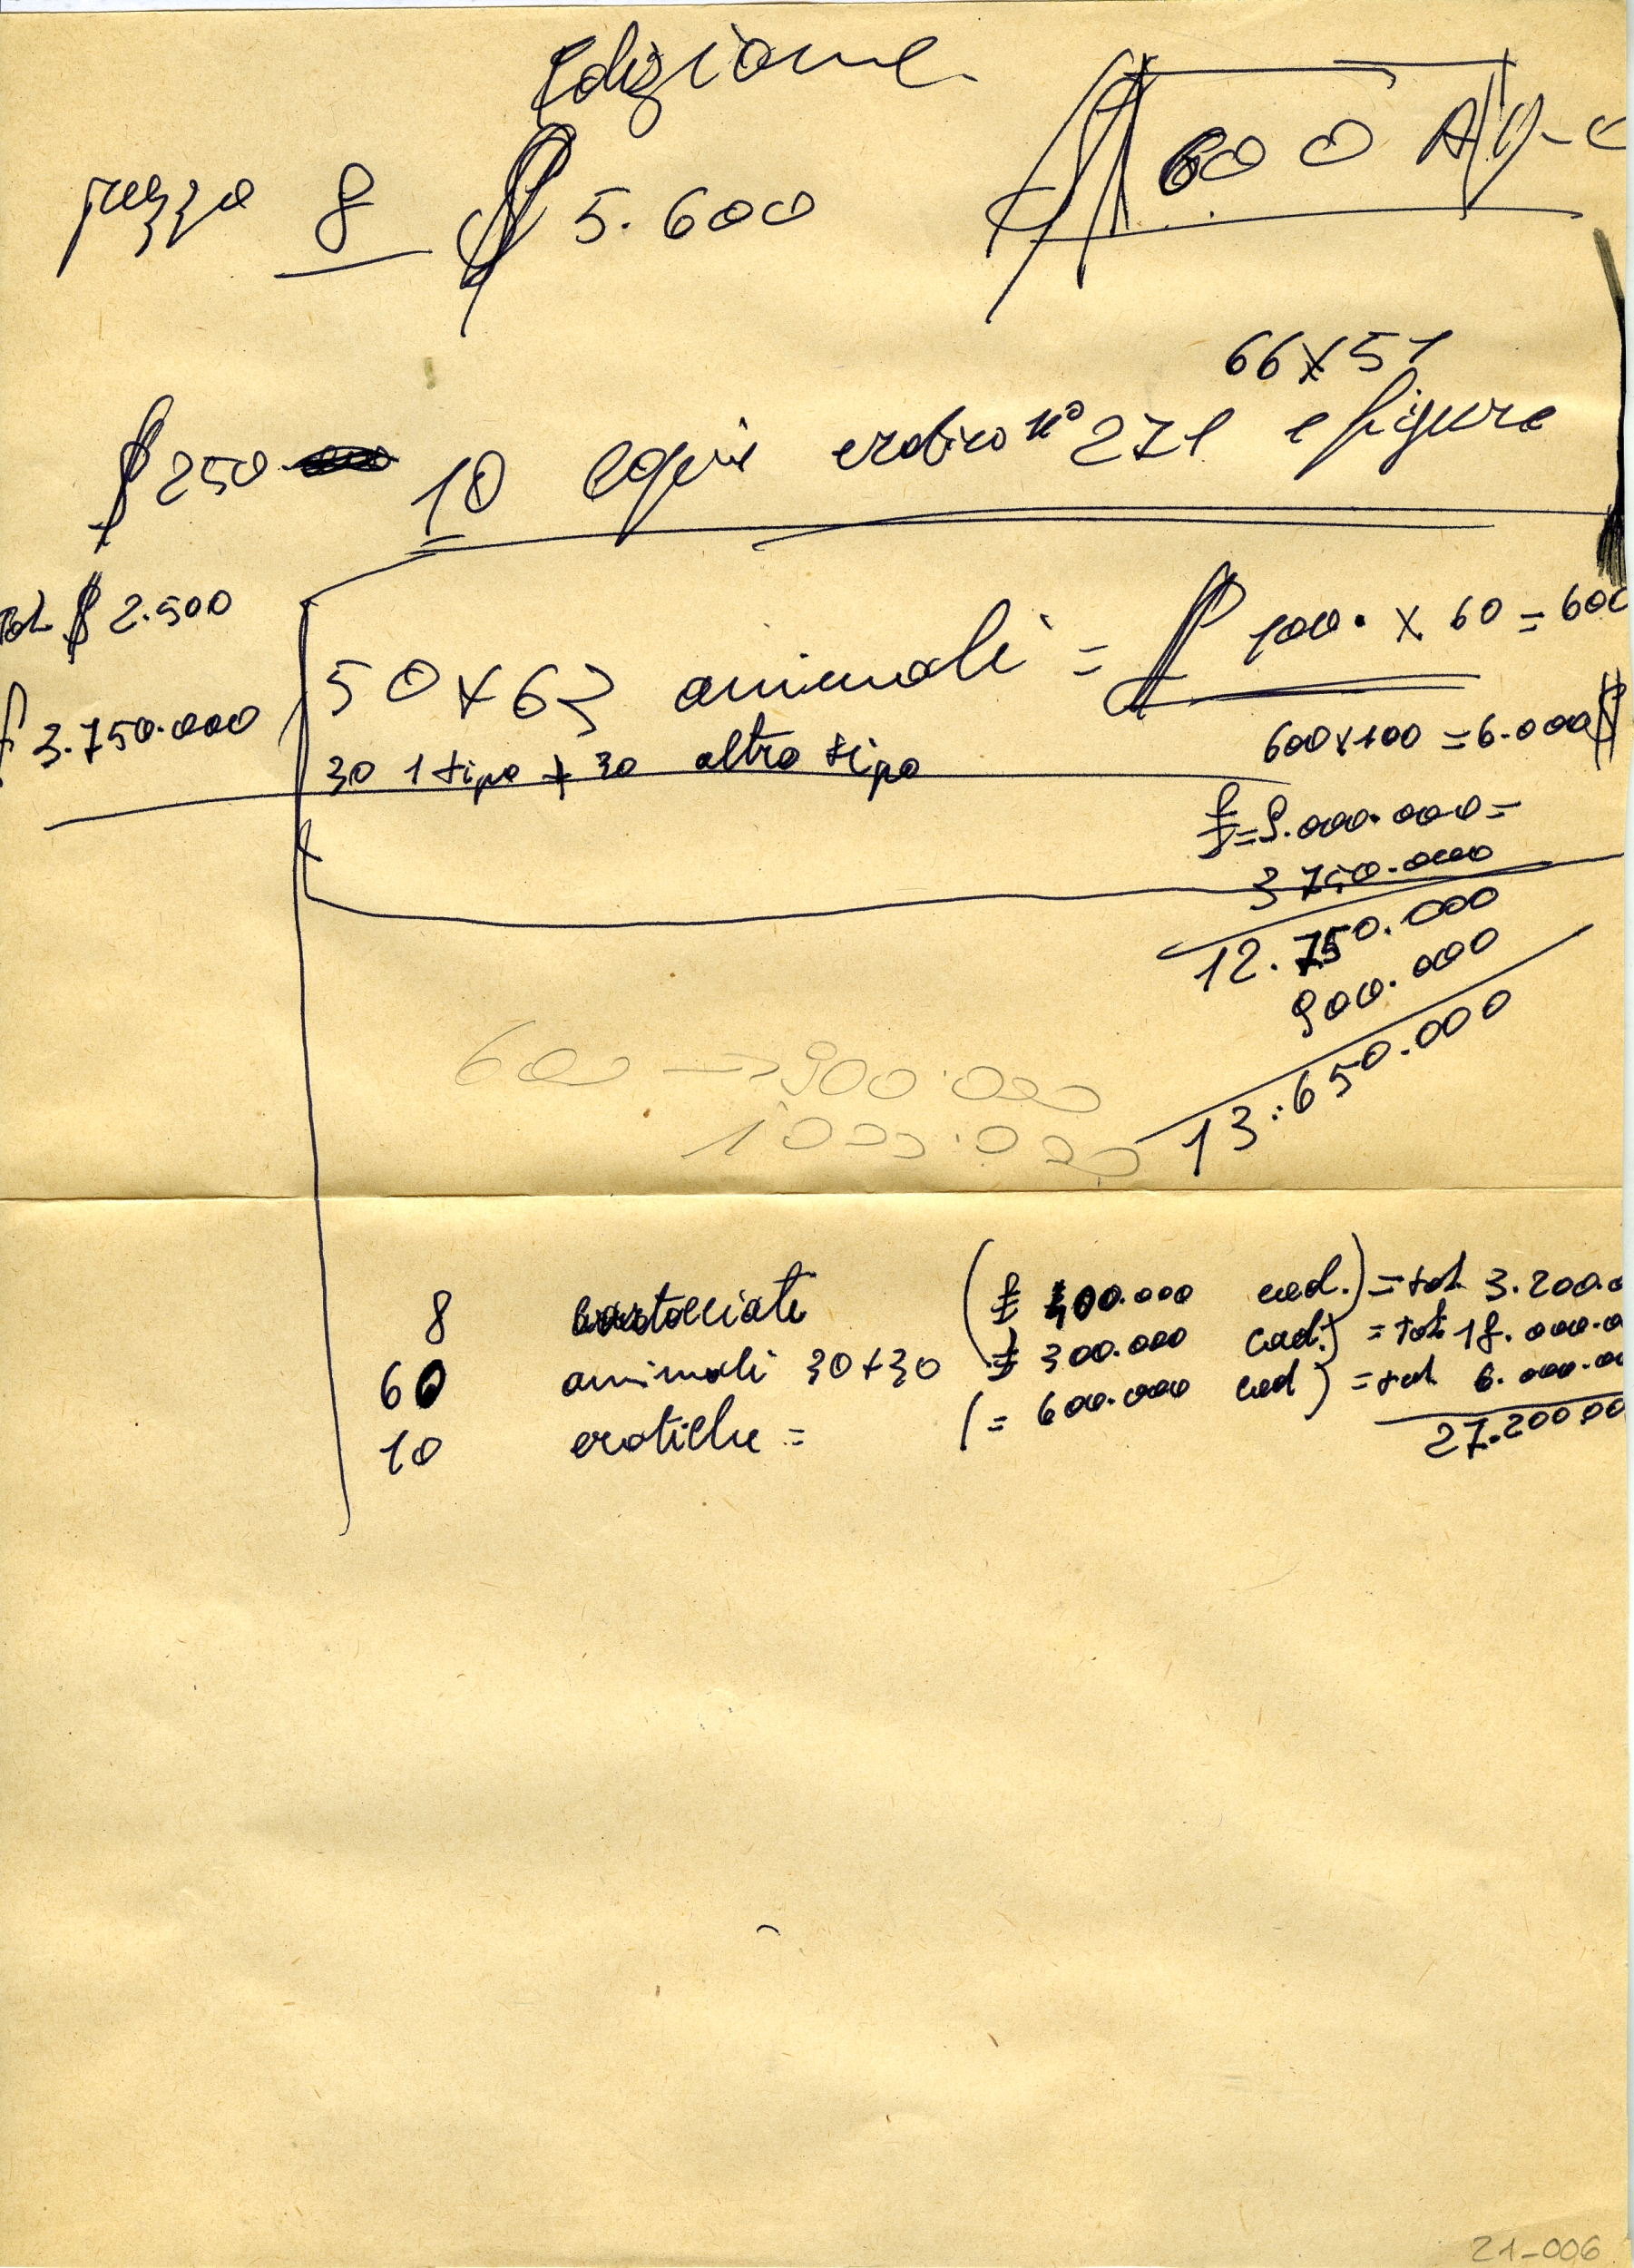 Edizione
600
prezzo 8 $ 5.600
66x51
$ 250 10 erotico n° 271 e figure
tot $ 2.500
50 x 63 animali = $ 100. x 60 = 600
£ 3.750.000
600x100 = 6.000 $
30 1 tipo + 30 altro tipo
£ = 9.000.000 =
3 750.000
12.750.000
900.000
13.650.000
600 => 900.000
1000.000
8 (£ 400.000 cad.) = tot 3.200.0
60 animali 30+30 £ 300.000 cad.) = tot 18.000.0
10 erotiche = ( = 600.000 cad ) = tot 6.000.00
27.200.00
21-006